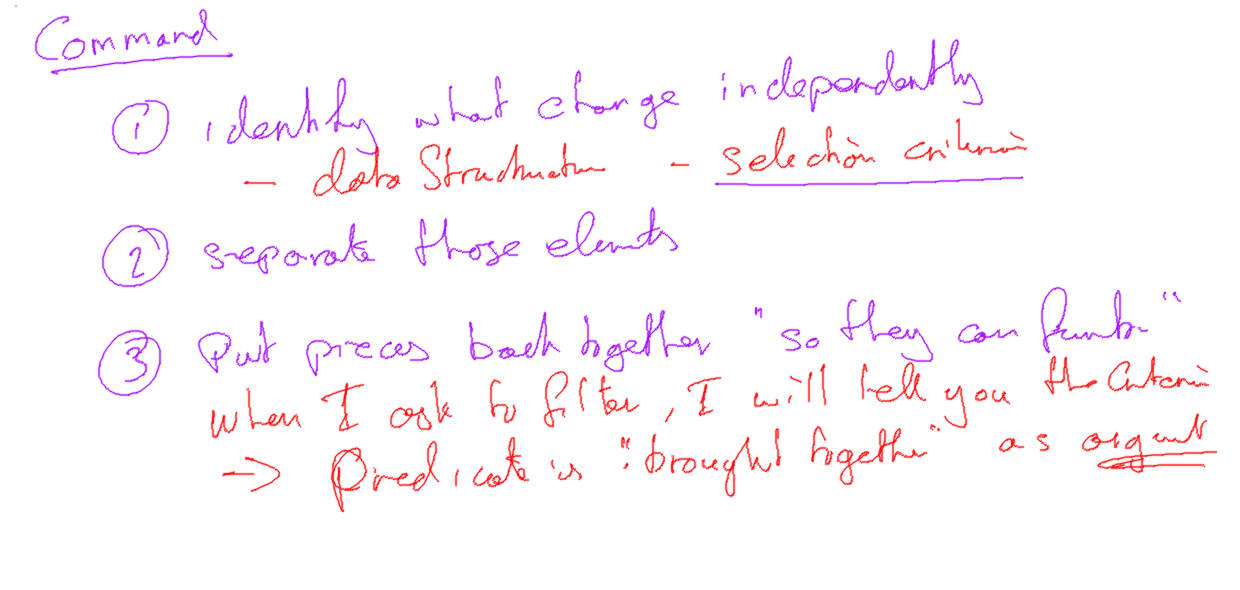 Command
① identify what change independently
- data Structure - selection criterion
② separate those elements
③ Put pieces back together "so they can function"
when I ask to filter, I will tell you the criterion
→ Predicate is "brought together" as argument